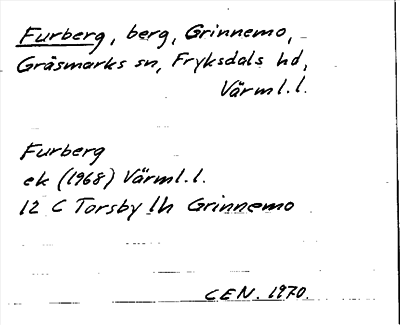 Furberg, berg, Grinnemo,
Gräsmarks sn, Fryksdals hd,
Värml.l.
Furberg
ek (1968) Värml.l.
12 C Torsby lh Grinnemo
CEN. 1970.